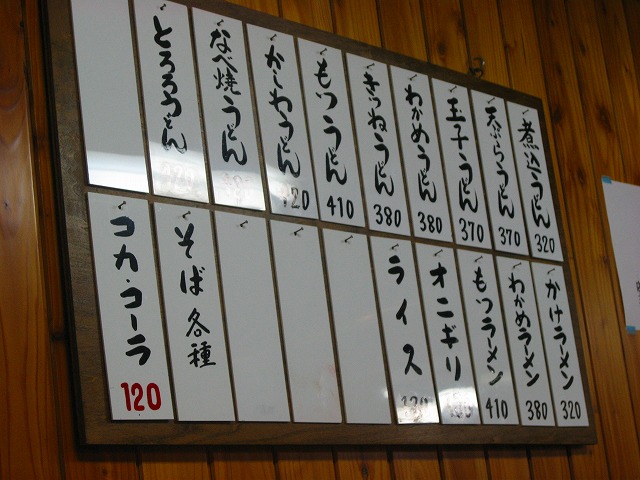 煮込うどん 320
天ぷらうどん 370
玉子うどん 370
わかめうどん 380
きつねうどん 380
もつうどん 410
かしわうどん
なべ焼うどん
とろろうどん
かけラーメン 320
わかめラーメン 380
もつラーメン 410
オニギリ
ライス
そば各種
コカ・コーラ 120